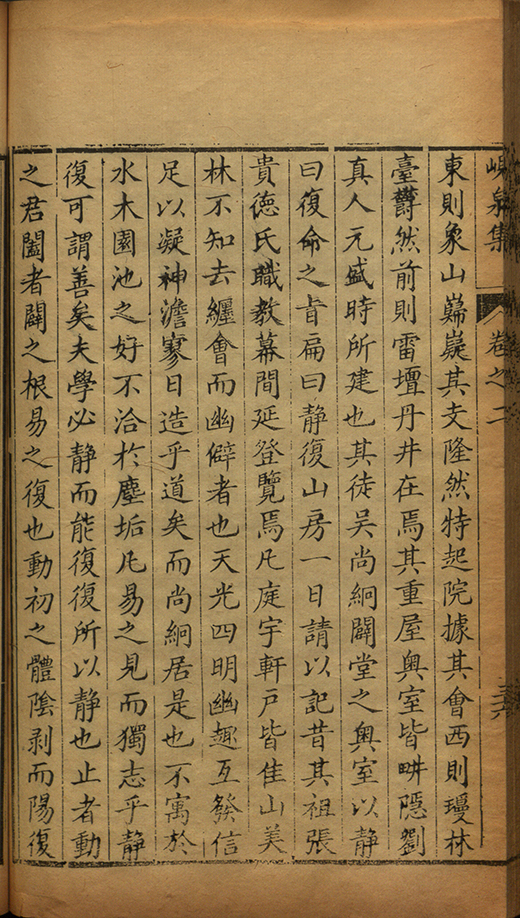 峴泉集 卷之二 三六
東則象山巋嶷其支隆然特起院據其會西則瓊林
臺欝然前則雷壇丹井在焉其重屋奧室皆畊隱劉
真人元盛時所建也其徒吳尚絅闢堂之奧室以静
曰復命之㫖扁曰静復山房一日請以記昔其祖張
貴德氏職教幕間延登覽焉凡庭宇軒戶皆佳山美
林不知去纏會而幽僻者也天光四明幽趣互發信
足以凝神澹寥日造乎道矣而尚絅居是也不寓於
水木園池之好不洽於塵垢凡易之見而獨志乎静
復可謂善矣夫學必静而能復復所以静也止者動
之君闔者闢之根易之復也動初之體陰剥而陽復